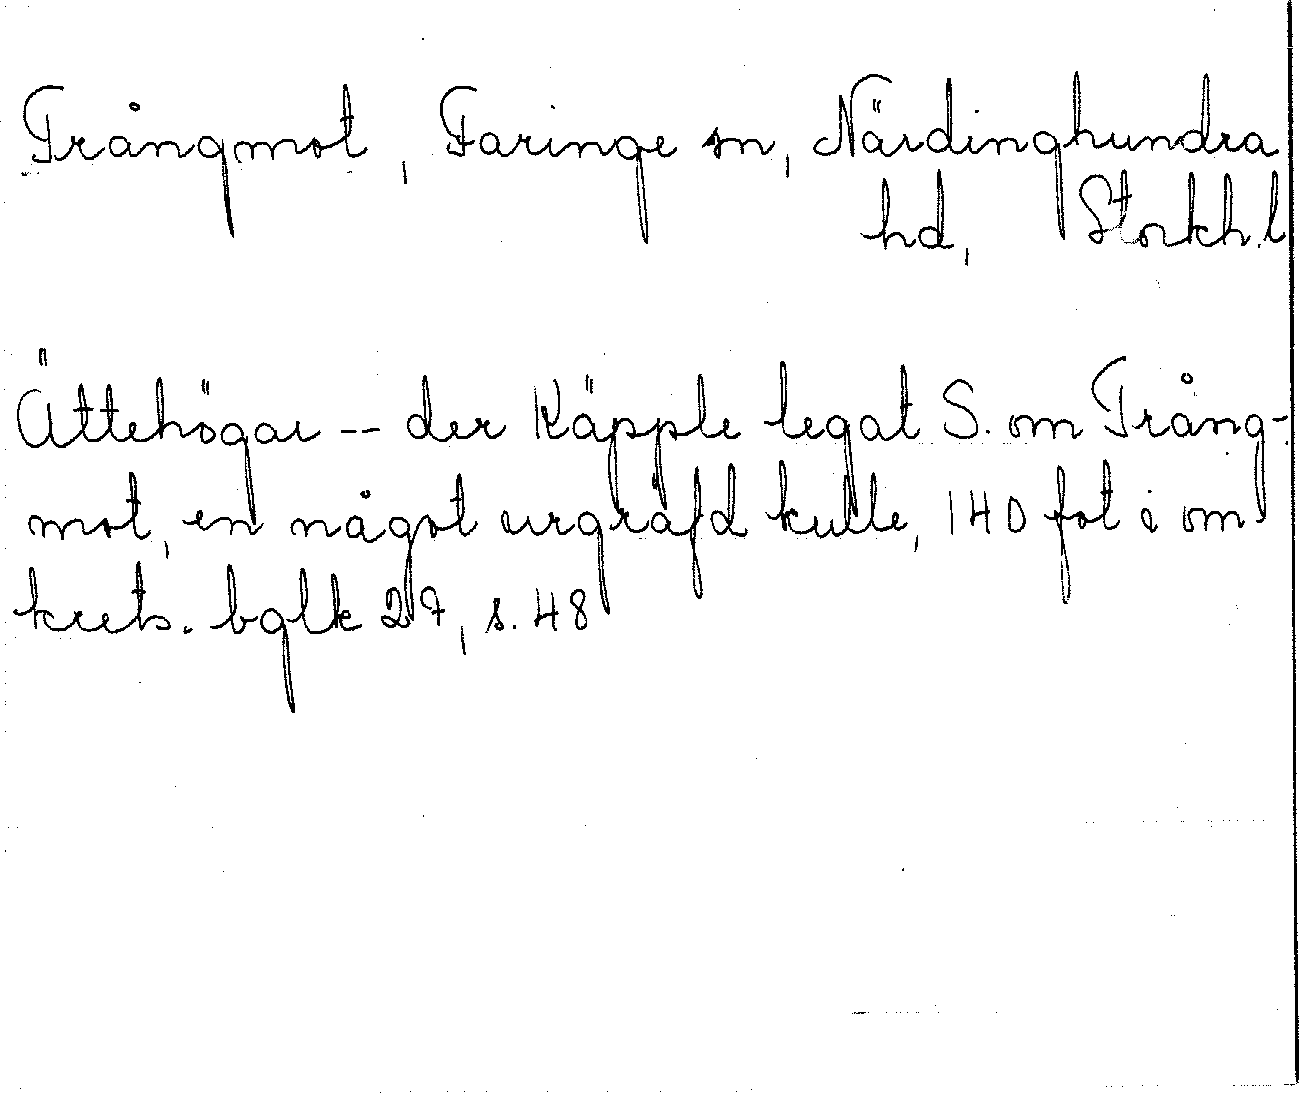 Trångmot, Faringe sn, Närdinghundra
hd, Stockh.l
Ättehögar -- der Käpple legat S. om Trång-
mot, en något urgräfd kulle, 140 fot i om
krets. bglk 27, s. 48